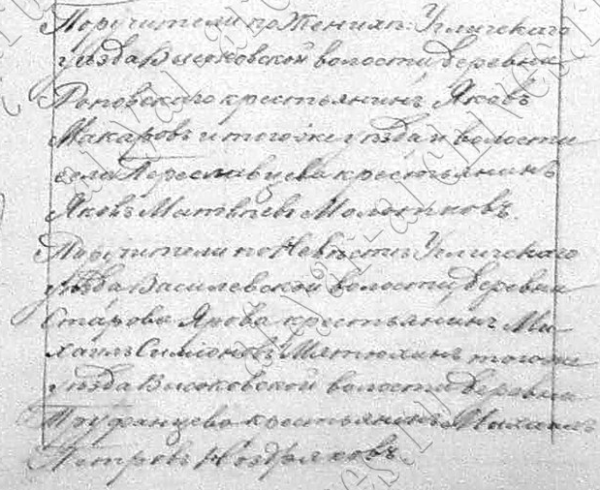 Поручители по женихѣ: Угличскаго
уѣзда Высоковской волости деревни
Поповскаго крестьянинъ Яковъ
Макаровъ и того же уѣзда и волости
села Переславцева крестьянинъ
Яковъ Матвѣевъ
Поручители по Невѣстѣ: Угличскаго
уѣзда Василевской волости деревни
Старова Ярова крестьянинъ Ми-
хаилъ Симіоновъ Матюхинъ того же
уѣзда Высоковской волости деревни
Труфанцево крестьянинъ Михаилъ
Петровъ Ноздряковъ.